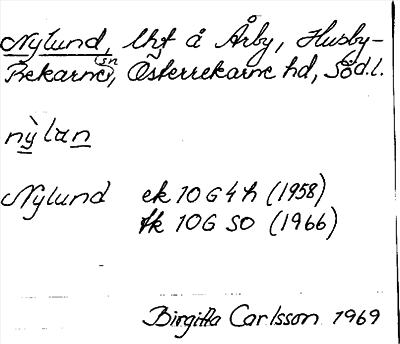 Nylund, lht å Årby, Husby-
Rekarne (sn), Österrekarne hd, Söd.l.
nỳlan
Nylund ek 10 G 4 h (1958)
fk 10G SO (1966)
Birgitta Carlsson 1969